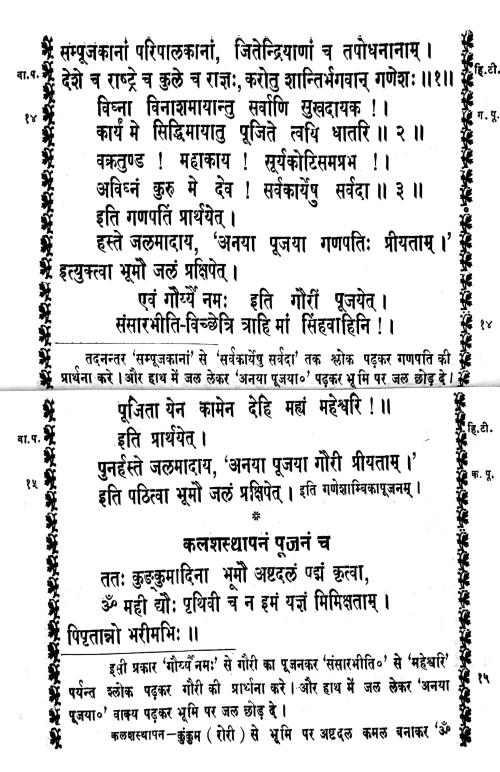 सम्पूजकानां परिपालकानां, जितेन्द्रियाणां च तपोधनानाम् ।
वा.प.
देशे च राष्ट्रे च कुले च राज्ञः, करोतु शान्तिर्भगवान् गणेशः ॥१॥
हि.टी.
विघ्ना विनाशमायान्तु सर्वाणि सुखदायक ! ।
१४
ग. पू.
कार्यं मे सिद्धिमायातु पूजिते त्वयि धातरि ॥ २ ॥
वक्रतुण्ड ! महाकाय ! सूर्यकोटिसमप्रभ ! ।
अविघ्नं कुरु मे देव ! सर्वकार्येषु सर्वदा ॥ ३ ॥
इति गणपतिं प्रार्थयेत् ।
हस्ते जलमादाय, 'अनया पूजया गणपतिः प्रीयताम् ।'
इत्युक्त्वा भूमौ जलं प्रक्षिपेत् ।
एवं गौर्य्यै नमः इति गौरीं पूजयेत् ।
संसारभीति-विच्छेत्रि त्राहि मां सिंहवाहिनि ! ।
१४
तदनन्तर 'सम्पूजकानां' से 'सर्वकार्येषु सर्वदा' तक श्लोक पढ़कर गणपति की
प्रार्थना करे । और हाथ में जल लेकर 'अनया पूजया०' पढ़कर भूमि पर जल छोड़ दे ।
पूजिता येन कामेन देहि मह्यं महेश्वरि ! ॥
वा.प.
हि.टी.
इति प्रार्थयेत् ।
पुनर्हस्ते जलमादाय, 'अनया पूजया गौरी प्रीयताम् ।'
१५
क. पू.
इति पठित्वा भूमौ जलं प्रक्षिपेत् । इति गणेशाम्बिकापूजनम् ।
*
कलशस्थापनं पूजनं च
ततः कुङ्कुमादिना भूमौ अष्टदलं पद्मं कृत्वा,
ॐ मही द्यौः पृथिवी च न इमं यज्ञं मिमिक्षताम् ।
पिपृतान्नो भरीमभिः ॥
इसी प्रकार 'गौर्य्यै नमः' से गौरी का पूजनकर 'संसारभीति०' से 'महेश्वरि'
१५
पर्यन्त श्लोक पढ़कर गौरी की प्रार्थना करे । और हाथ में जल लेकर 'अनया
पूजया०' वाक्य पढ़कर भूमि पर जल छोड़ दे ।
कलशस्थापन–कुंकुम (रोरी) से भूमि पर अष्टदल कमल बनाकर 'ॐ